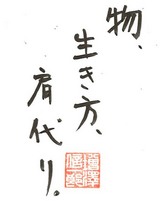 物、
生き方、
肩代り。